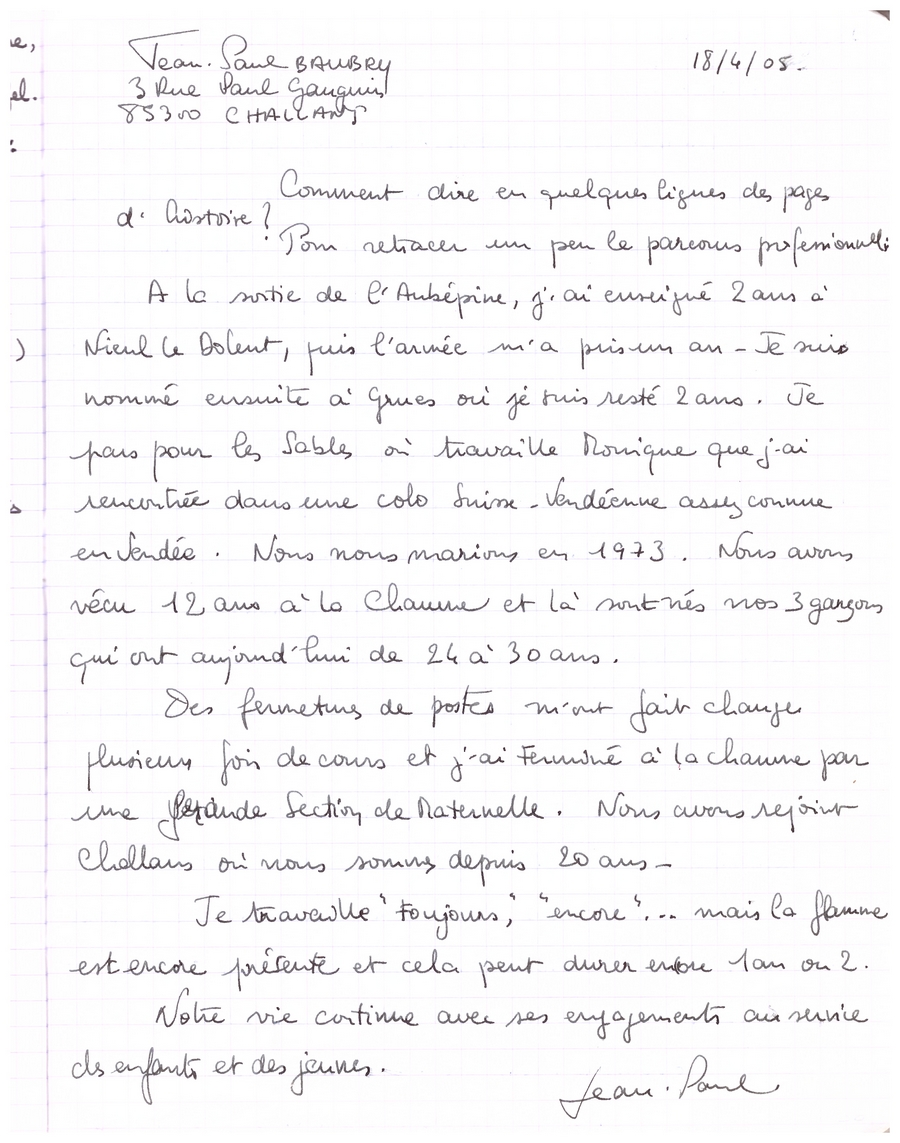 Jean-Paul BAUBRY
3 Rue Paul Gauguin
85300 CHALLANS
18/4/05.
Comment dire en quelques lignes des pages
d'histoire ?
Pour retracer un peu le parcours professionnel :
A la sortie de l'Aubépine, j'ai enseigné 2 ans à
Nieul le Dolent, puis l'armée m'a pris un an - Je suis
nommé ensuite à Grues où je suis resté 2 ans. Je
pars pour les Sables où travaille Monique que j'ai
rencontrée dans une colo Suisse-Vendéenne assez connue
en Vendée. Nous nous marions en 1973. Nous avons
vécu 12 ans à la Chaume et là sont nés nos 3 garçons
qui ont aujourd'hui de 24 à 30 ans.
Des fermetures de postes m'ont fait changer
plusieurs fois de cours et j'ai terminé à la chaume par
une Grande Section de Maternelle. Nous avons rejoint
Challans où nous sommes depuis 20 ans -
Je travaille "toujours", "encore"... mais la flamme
est encore présente et cela peut durer encore 1 an ou 2.
Notre vie continue avec ses engagements au service
des enfants et des jeunes.
Jean-Paul